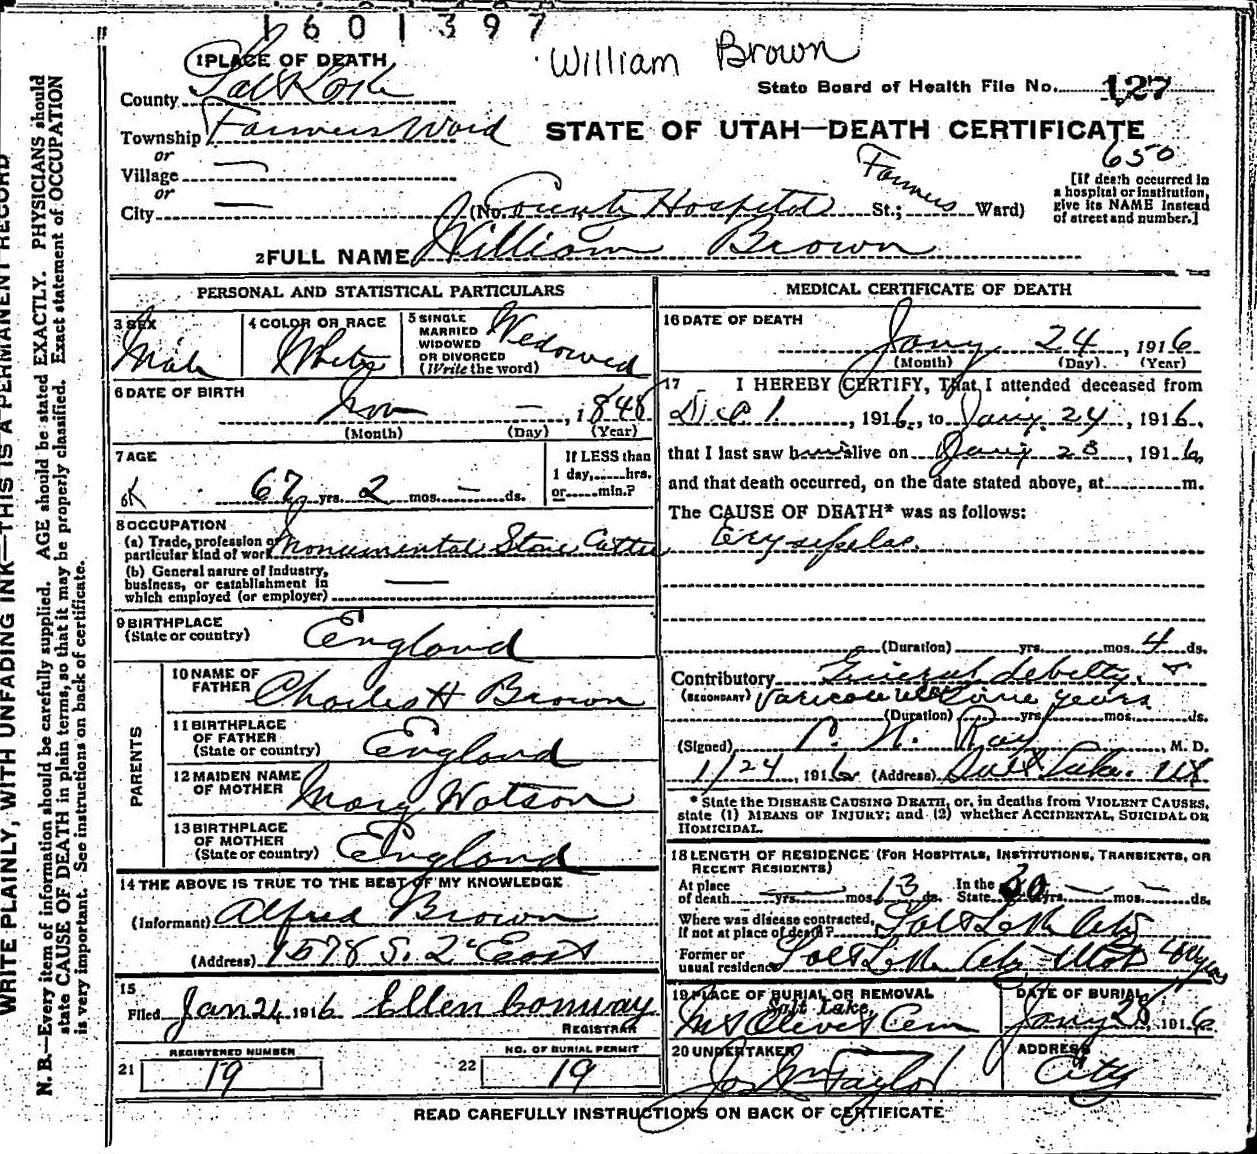 1601397
William Brown
1 PLACE OF DEATH
State Board of Health File No. 127
County Salt Lake
Township Farmers Ward
STATE OF UTAH—DEATH CERTIFICATE
650
or
Village —
or
City —
(No. County Hospital St.; Farmers Ward)
[If death occurred in
a hospital or institution,
give its NAME instead
of street and number.]
2 FULL NAME William Brown
PERSONAL AND STATISTICAL PARTICULARS
3 SEX Male
4 COLOR OR RACE White
5 SINGLE
MARRIED
WIDOWED
OR DIVORCED
(Write the word)
Widowed
6 DATE OF BIRTH
Nov — , 1848
(Month) (Day) (Year)
7 AGE
67 yrs. 2 mos. — ds.
If LESS than
1 day,......hrs.
or......min.?
8 OCCUPATION
(a) Trade, profession or
particular kind of work Monumental Stone Cutter
(b) General nature of industry,
business, or establishment in
which employed (or employer) —
9 BIRTHPLACE
(State or country) England
PARENTS
10 NAME OF
FATHER Charles H Brown
11 BIRTHPLACE
OF FATHER
(State or country) England
12 MAIDEN NAME
OF MOTHER Mary Watson
13 BIRTHPLACE
OF MOTHER
(State or country) England
14 THE ABOVE IS TRUE TO THE BEST OF MY KNOWLEDGE
(Informant) Alfred Brown
(Address) 1578 S. 2d East
15
Filed Jan 24 1916 Ellen
REGISTRAR
REGISTERED NUMBER
21 19
NO. OF BURIAL PERMIT
22 19
MEDICAL CERTIFICATE OF DEATH
16 DATE OF DEATH
Jany. 24, 1916
(Month) (Day) (Year)
17 I HEREBY CERTIFY, That I attended deceased from
1., 1916, to Jany. 24, 1916,
that I last saw him alive on Jany 23, 1916,
and that death occurred, on the date stated above, at ........m.
The CAUSE OF DEATH* was as follows:
Erysipelas.
(Duration) yrs. mos. 4 ds.
Contributory General debility &
(SECONDARY) Varicose ulcer some years
(Duration) yrs. mos. ds.
(Signed) Ray, M. D.
1/24, 1916 (Address) Salt Lake. Ut
* State the DISEASE CAUSING DEATH, or, in deaths from VIOLENT CAUSES,
state (1) MEANS OF INJURY; and (2) whether ACCIDENTAL, SUICIDAL OR
HOMICIDAL.
18 LENGTH OF RESIDENCE (FOR HOSPITALS, INSTITUTIONS, TRANSIENTS, OR
RECENT RESIDENTS)
At place
of death — yrs. — mos. 13 ds. In the
State yrs. — mos. — ds.
Where was disease contracted,
if not at place of death? Salt Lake City
Former or
usual residence Salt Lake City Utah
19 PLACE OF BURIAL OR REMOVAL
Salt Lake
Mt Olivet Cem
DATE OF BURIAL
Jany 28, 1916
20 UNDERTAKER
Jos Wm Taylor
ADDRESS
City
READ CAREFULLY INSTRUCTIONS ON BACK OF CERTIFICATE
WRITE PLAINLY, WITH UNFADING INK—THIS IS A PERMANENT RECORD
N. B.—Every item of information should be carefully supplied. AGE should be stated EXACTLY. PHYSICIANS should
state CAUSE OF DEATH in plain terms, so that it may be properly classified. Exact statement of OCCUPATION
is very important. See instructions on back of certificate.